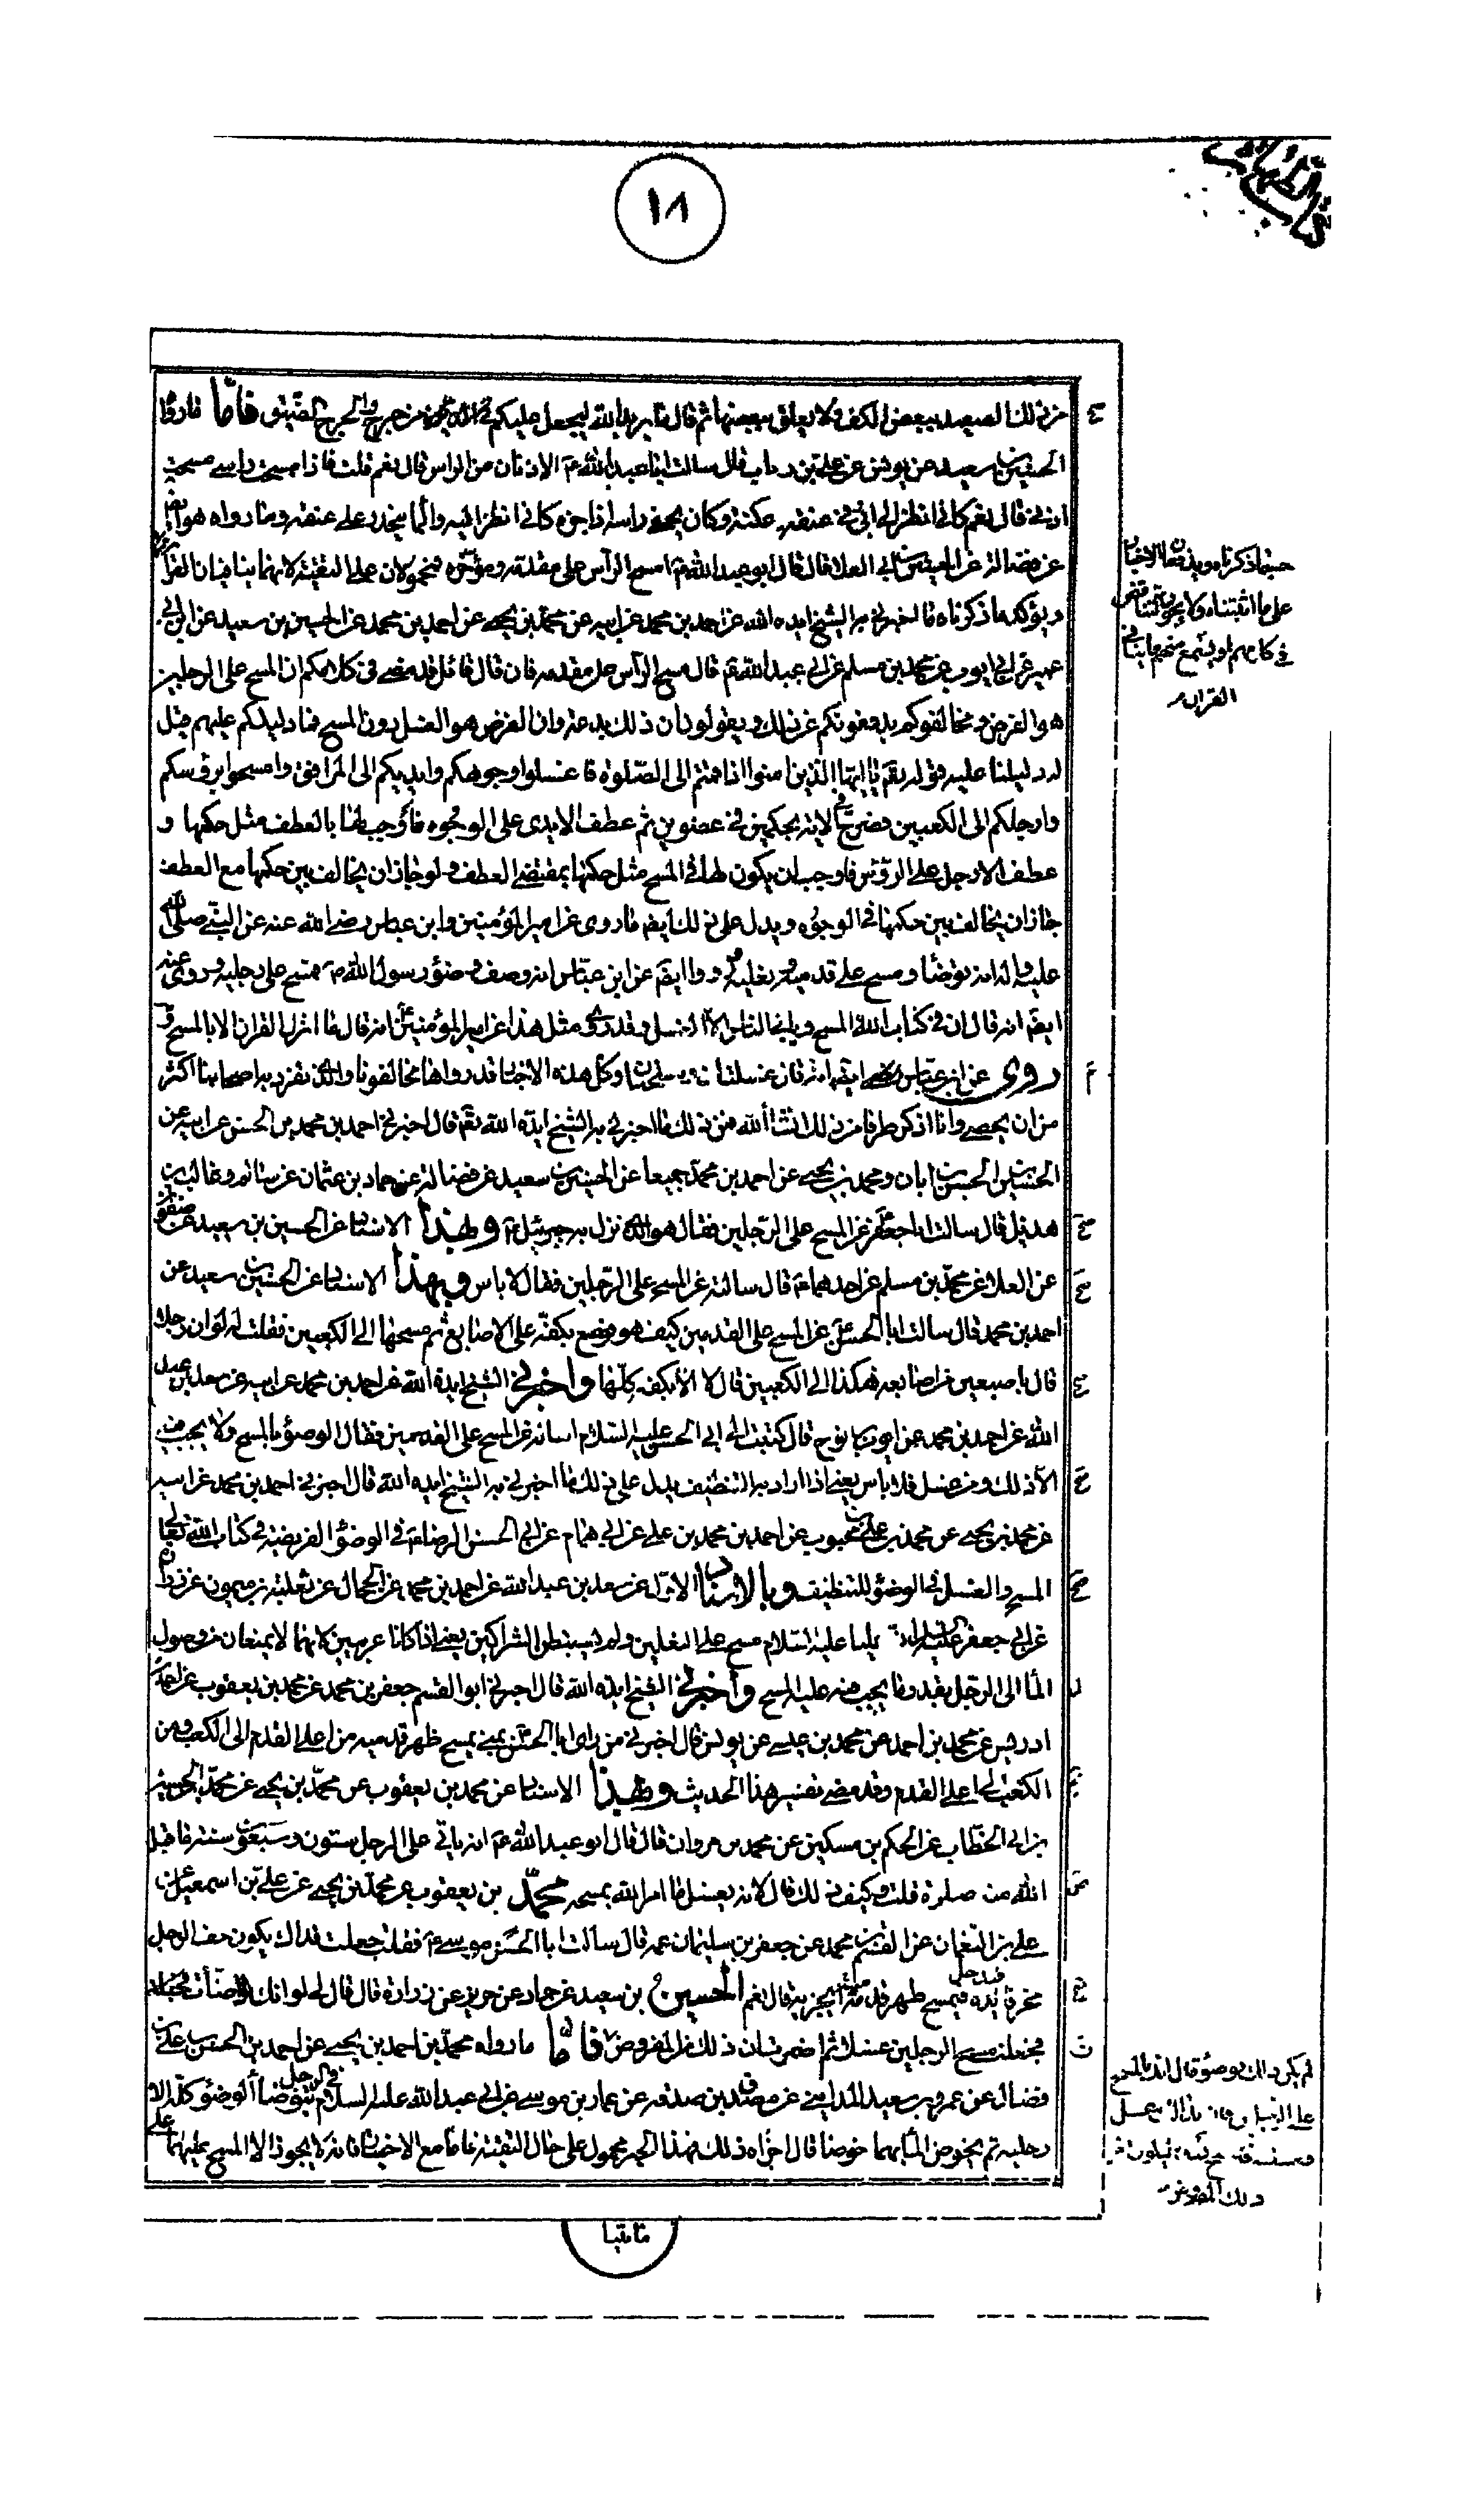 كتاب الطهارة
١٨
من ذلك الصعيد ببعض الكف ولا يعلق ببعضها ثم قال ما يريد الله ليجعل عليكم في الدين من حرج والحرج الضيق فاما ما رواه
الحسين بن سعيد عن يونس عن علي بن رئاب قال سالت ابا عبد الله ع الاذنان من الراس قال نعم قلت فاذا مسحت راسي مسحت
اذني قال نعم كاني انظر الى ابي في عنقه عكنة وكان يحفي راسه اذا جزه كاني انظر اليه والماء ينحدر على عنقه وما رواه هو ايضا
عن فضالة عن الحسين بن ابي العلا قال قال ابو عبد الله ع امسح الراس على مقدمه ومؤخره فمحمولان على التقية لانهما ينافيان القران
ويؤكد ما ذكرناه ما اخبرني به الشيخ ايده الله عن احمد بن محمد عن ابيه عن محمد بن يحيى عن احمد بن محمد عن الحسين بن سعيد عن ابن ابي
عمير عن ابي ايوب عن محمد بن مسلم عن ابي عبد الله ع قال مسح الراس على مقدمه فان قال قائل قد مضى في كلامكم ان المسح على الرجلين
هو الفرض ومخالفوكم يدفعونكم عن ذلك ويقولون ان ذلك بدعة وان الفرض هو الغسل دون المسح فما دليلكم عليهم قيل
له دليلنا عليه قوله تعم يا ايها الذين امنوا اذا قمتم الى الصلوة فاغسلوا وجوهكم وايديكم الى المرافق وامسحوا برؤسكم
وارجلكم الى الكعبين فصرح في الاية بحكمين في عضوين ثم عطف الايدي على الوجوه فاوجب لها بالعطف مثل حكمها و
عطف الارجل على الرؤس فاوجب ان يكون لها في المسح مثل حكمها بمقتضى العطف ولو جاز ان يخالف بين حكمها مع العطف
جاز ان يخالف بين حكمها في الوجوه ويدل على ذلك ايضا ما روي عن امير المؤمنين وابن عباس رضي الله عنه عن النبي صلى الله
عليه واله انه توضا ومسح على قدميه ونعليه ورووا ايضا عن ابن عباس انه وصف وضوء رسول الله ص فمسح على رجليه وروي عنه
ايضا انه قال ان في كتاب الله المسح ويابى الناس الا الغسل وقد روي مثل هذا عن امير المؤمنين ع انه قال ما انزل القران الا بالمسح و
روى عن ابن عباس ايضا انه قال غسلتان ومسحتان وكل هذه الاخبار قد رواها مخالفونا والذي تفرد به اصحابنا اكثر
من ان يحصى وانا اذكر طرفا من ذلك انشا الله فمن ذلك ما اخبرني به الشيخ ايده الله تعم قال اخبرني احمد بن محمد بن الحسن عن ابيه عن
الحسين بن الحسن بن ابان ومحمد بن يحيى عن احمد بن محمد جميعا عن الحسين بن سعيد عن فضالة عن حماد بن عثمان عن سالم وغالب بن
هذيل قال سالت ابا جعفر ع عن المسح على الرجلين فقال هو الذي نزل به جبرئيل ع وبهذا الاسناد عن الحسين بن سعيد عن صفوان
عن العلا عن محمد بن مسلم عن احدهما ع قال سالته عن المسح على الرجلين فقال لا باس وبهذا الاسناد عن الحسين بن سعيد عن
احمد بن محمد قال سالت ابا الحسن ع عن المسح على القدمين كيف هو فوضع بكفه على الاصابع ثم مسحها الى الكعبين فقلت له لو ان رجلا
قال باصبعين من اصابعه هكذا الى الكعبين قال لا الا بكفه كلها واخبرني الشيخ ايده الله عن احمد بن محمد عن ابيه عن سعد بن عبد
الله عن احمد بن محمد عن ايوب بن نوح قال كتبت الى ابي الحسن عليه السلام اساله عن المسح على القدمين فقال الوضوء بالمسح ولا يجب فيه
الا ذلك ومن غسل فلا باس يعني اذا اراد به التنظيف يدل على ذلك ما اخبرني به الشيخ ايده الله قال اخبرني احمد بن محمد عن ابيه
عن محمد بن يحيى عن محمد بن علي بن محبوب عن احمد بن محمد بن علي عن ابي همام عن ابي الحسن الرضا ع في الوضوء الفريضة في كتاب الله تعالى
المسح والغسل في الوضوء للتنظيف وبالاسناد الاول عن سعد بن عبد الله عن احمد بن محمد عن الحجال عن ثعلبة بن ميمون عن زرارة
عن ابي جعفر عليه السلام ان عليا عليه السلام مسح على النعلين ولم يستبطن الشراكين يعني اذا كانا عربيين لانهما لا يمنعان من وصول
الماء الى الرجل بقدر ما يجب فيه عليه المسح واخبرني الشيخ ايده الله قال اخبرني ابو القسم جعفر بن محمد عن محمد بن يعقوب عن احمد بن
ادريس عن محمد بن احمد عن محمد بن عيسى عن يونس قال اخبرني من راى ابا الحسن ع بمنى يمسح ظهر قدميه من اعلى القدم الى الكعب ومن
الكعب الى اعلى القدم وقد مضى تفسير هذا الحديث وبهذا الاسناد عن محمد بن يعقوب عن محمد بن يحيى عن محمد بن الحسين
بن ابي الخطاب عن الحكم بن مسكين عن محمد بن مروان قال قال ابو عبد الله ع انه ياتي على الرجل ستون وسبعون سنة ما قبل
الله منه صلوة قلت وكيف ذلك قال لانه يغسل ما امر الله بمسحه محمد بن يعقوب عن محمد بن يحيى عن علي بن اسمعيل عن
علي بن النعمان عن القسم بن محمد عن جعفر بن سليمان عمه قال سالت ابا الحسن موسى ع فقلت جعلت فداك يكون خف الرجل
مخرقا فيدخل يده فيمسح ظهر قدميه ايجزيه قال نعم الحسين بن سعيد عن حماد عن حريز عن زرارة قال قال لي لو انك توضات فجعلت
مسح الرجلين غسلا ثم اضمرت ان ذلك من المفروض فاما ما رواه محمد بن احمد بن يحيى عن احمد بن الحسن بن علي بن
فضال عن عمرو بن سعيد المدايني عن مصدق بن صدقة عن عمار بن موسى عن ابي عبد الله عليه السلام في الرجل يتوضا الوضوء كله الا
رجليه ثم يخوض الماء بهما خوضا قال اجزاه ذلك فهذا الخبر محمول على حال التقية فاما مع الاختيار فانه لا يجوز الا المسح عليهما على
ما بينا
حسبما ذكرناه ويدفعان الاخبار
على ما اثبتناه ولا يجوز التناقض
في كلامهم
القران
لم يكن ذلك بوضوء
ذلك المفروض